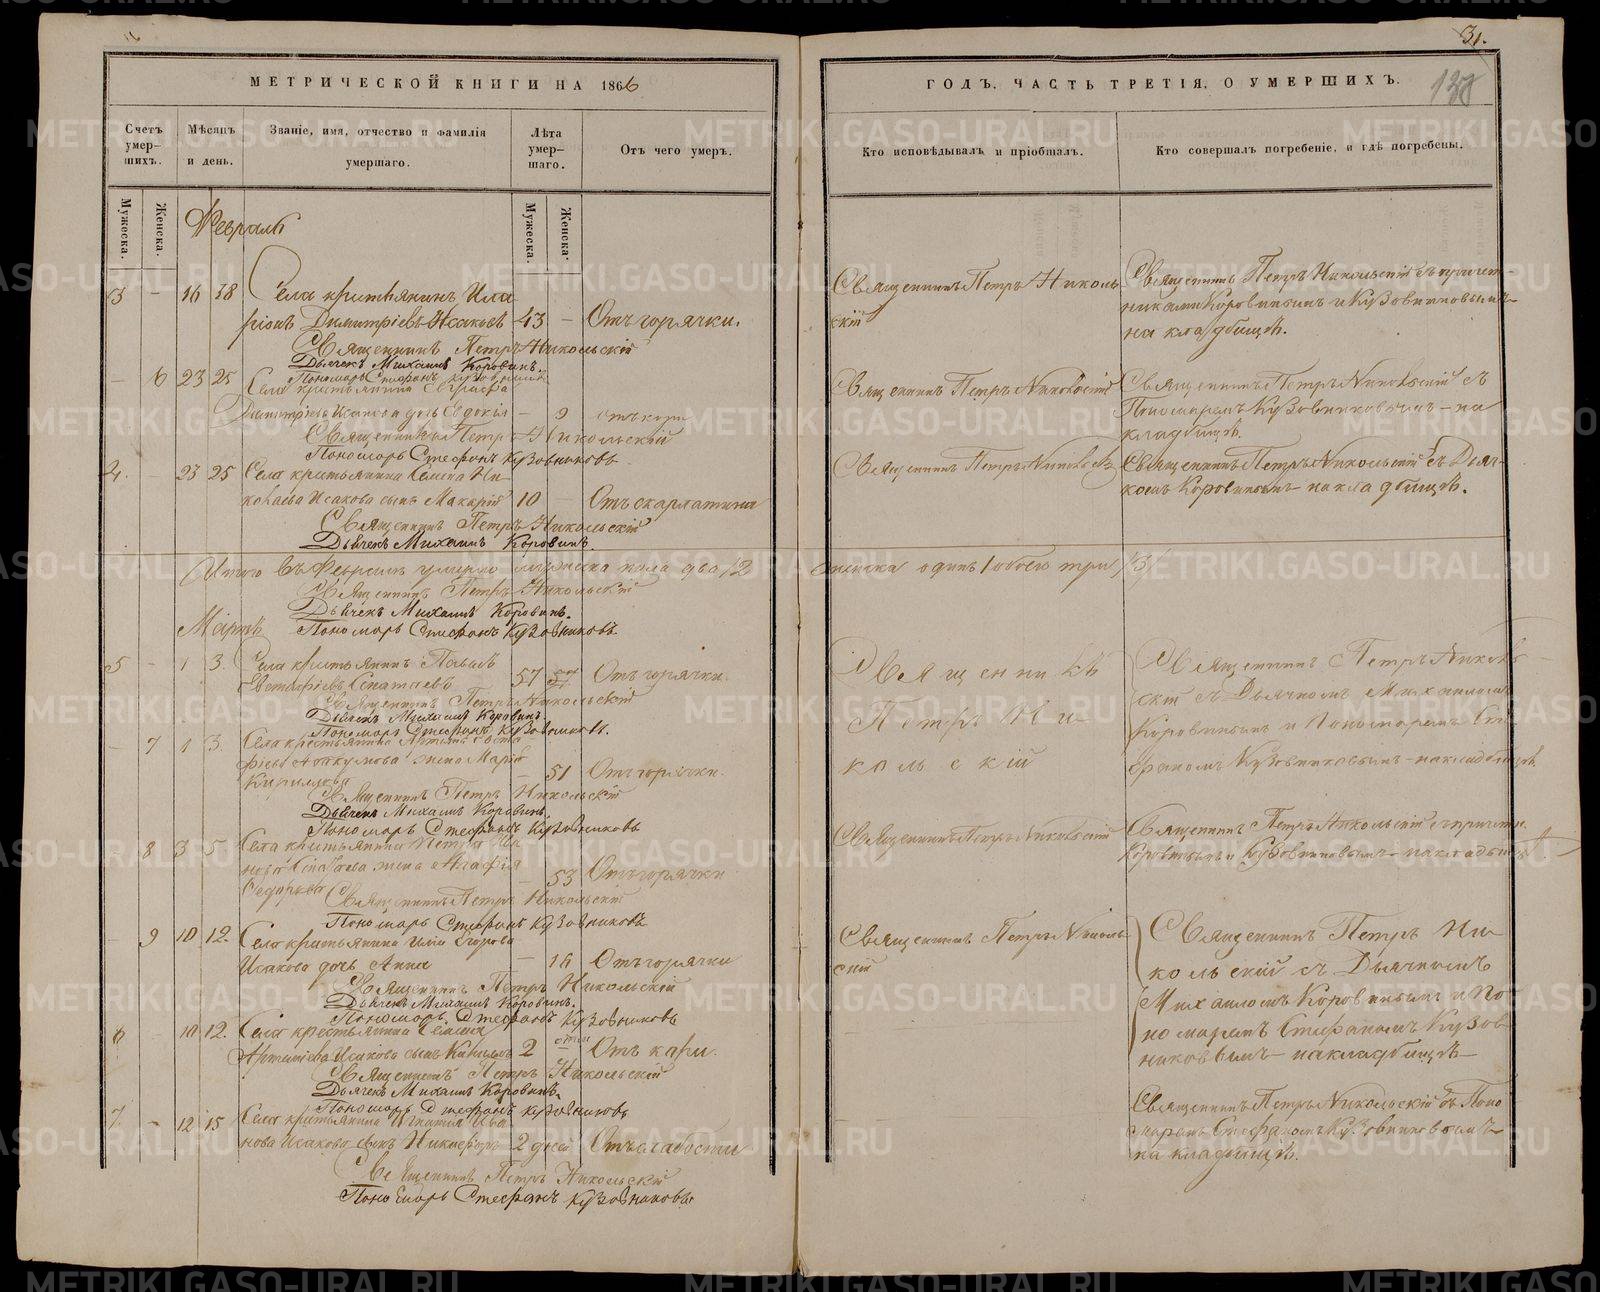 31.
138
МЕТРИЧЕСКОЙ КНИГИ НА 1866
Счетъ умер-шихъ.
Мѣсяцъ и день.
Званіе, имя, отчество и фамилія умершаго.
Лѣта умер-шаго.
Отъ чего умеръ.
Мужеска.
Женска.
Мужеска.
Женска.
Февраль
3 – 16 18 Села крестьянинъ Ила
ріонъ Димитріевъ Исаковъ 43 – Отъ горячки.
Священникъ Петръ Никольскій
Дьячекъ Михаилъ Коровинъ.
Пономарь Стефанъ Кузовниковъ
– 6 23 25 Села крестьянина Евграфа
Димитріева Исакова дочь Евдокія – 9 отъ кори
Священникъ Петръ Никольскій
Пономарь Стефанъ Кузовниковъ
4. – 23 25 Села крестьянина Ни-
колаева Исакова сынъ Макарій 10 – Отъ скарлатины
Священникъ Петръ Никольскій
Дьячекъ Михаилъ Коровинъ.
Итого въ Февралѣ умерло мужеска пола два /2
Священникъ Петръ Никольскій
Дьячекъ Михаилъ Коровинъ.
Мартъ Пономарь Стефанъ Кузовниковъ.
5 – 1 3. Села крестьянинъ Павелъ
57 Отъ горячки.
Священникъ Петръ Никольскій
Дьячекъ Михаилъ Коровинъ.
Пономарь Стефанъ Кузовниковъ.
– 7 1 3. Села крестьянина
жена Марія
Кирилова – 51 Отъ горячки.
Священникъ Петръ Никольскій
Дьячекъ Михаилъ Коровинъ.
Пономарь Стефанъ Кузовниковъ
– 8 3 5 Села крестьянина Петра
жена Агафія
Федорова – 53 Отъ горячки
Священникъ Петръ Никольскій
Пономарь Стефанъ Кузовниковъ
– 9 10 12. Села крестьянина Егорова
Исакова дочь Анна – 16 Отъ горячки
Священникъ Петръ Никольскій
Дьячекъ Михаилъ Коровинъ.
Пономарь Стефанъ Кузовниковъ
6 – 10 12. Села крестьянина
Артемьева Исакова сынъ 2 Отъ кори.
Священникъ Петръ Никольскій
Дьячекъ Михаилъ Коровинъ.
Пономарь Стефанъ Кузовниковъ
7. – 12 15 Села крестьянина Игнатія Ива
нова Исакова сынъ Никифоръ 2 дней Отъ слабости
Священникъ Петръ Никольскій
Пономарь Стефанъ Кузовниковъ
ГОДЪ, ЧАСТЬ ТРЕТІЯ, О УМЕРШИХЪ.
Кто исповѣдывалъ и пріобщалъ.
Кто совершалъ погребеніе, и гдѣ погребены.
Священникъ Петръ Николь
скій
Священникъ Петръ Никольскій съ причет-
никами Коровинымъ и Кузовниковымъ
на кладбищѣ.
Священникъ Петръ Никольскій
Священникъ Петръ Никольскій съ
Пономаремъ Кузовниковымъ – на
кладбищѣ.
Священникъ Петръ Никольскій
Священникъ Петръ Никольскій съ Дьяч-
комъ Коровинымъ на кладбищѣ.
женска одинъ 1 обоего три /3/
Священникъ
Петръ Ни-
кольскій
Священникъ Петръ Николь-
скій съ Дьячкомъ Михаиломъ
Коровинымъ и Пономаремъ Сте
фаномъ Кузовниковымъ – на кладбищѣ
Священникъ Петръ Никольскій
Священникъ Петръ Никольскій съ причетн.
Коровинымъ и Кузовниковымъ – на кладбищѣ
Священникъ Петръ Николь
скій
Священникъ Петръ Ни-
кольскій съ Дьячкомъ
Михаиломъ Коровинымъ и По
номаремъ Стефаномъ Кузов
никовымъ – на кладбищѣ –
Священникъ Петръ Никольскій съ Поно
маремъ Стефаномъ Кузовниковымъ
на кладбищѣ.
METRIKI.GASO-URAL.RU